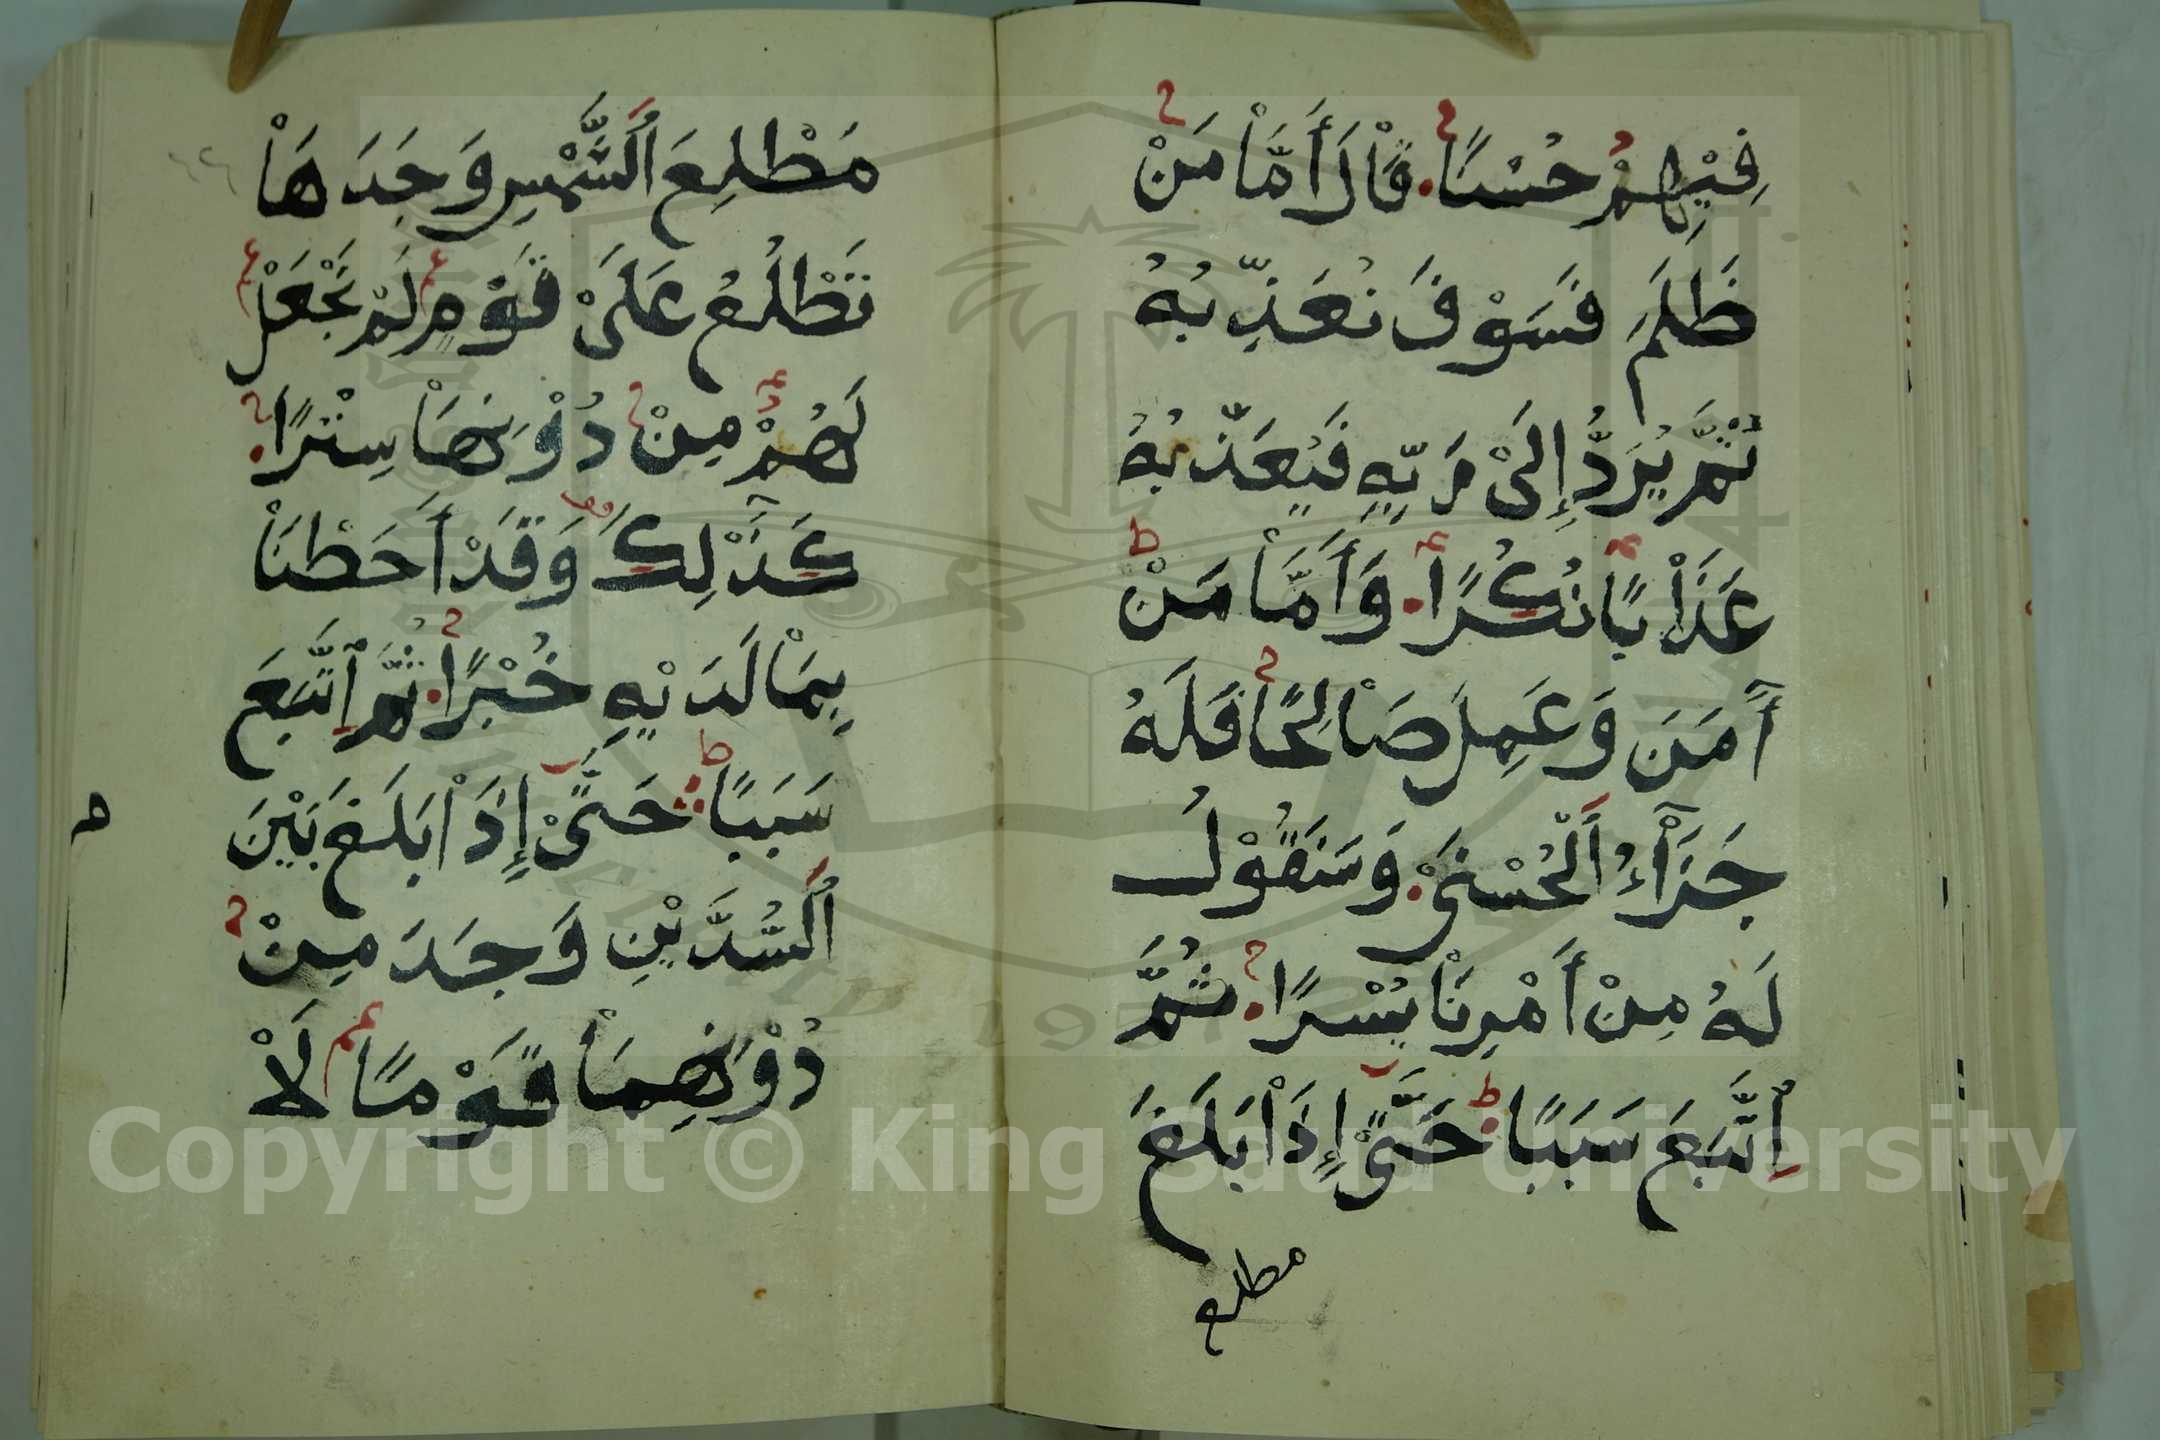 فِيْهِمْ حُسْنًا. قَالَ أَمَّا مَنْ
ظَلَمَ فَسَوْفَ نُعَذِّبُهُ
ثُمَّ يُرَدُّ إِلَىْ رَبِّهِ فَيُعَذِّبُهُ
عَذَاْبًا نُكْرًا. وَأَمَّاْ مَنْ
آمَنَ وَعَمِلَ صَاْلِحًا فَلَهُ
جَزَآءُ اَلْحُسْنَىْ. وَسَنَقُوْلُ
لَهُ مِنْ أَمْرِنَاْ يُسْرًا. ثُمَّ
اِتَّبَعَ سَبَبًا. حَتَّىْ إِذَاْ بَلَغَ
مطلع
مَطْلِعَ اَلشَّمْسِ وَجَدَهَاْ
تَطْلُعُ عَلَىْ قَوْمٍ لَمْ نَجْعَلْ
لَهُمْ مِنْ دُوْنِهَاْ سِتْرًا.
كَذَٰلِكَ وَقَدْ أَحَطْنَاْ
بِمَاْ لَدَيْهِ خُبْرًا. ثُمَّ اِتَّبَعَ
سَبَبًا. حَتَّىْ إِذَاْ بَلَغَ بَيْنَ
اَلسُّدَّيْنِ وَجَدَ مِنْ
دُوْنِهِمَاْ قَوْمًا لَاْ
Copyright © King Saud University